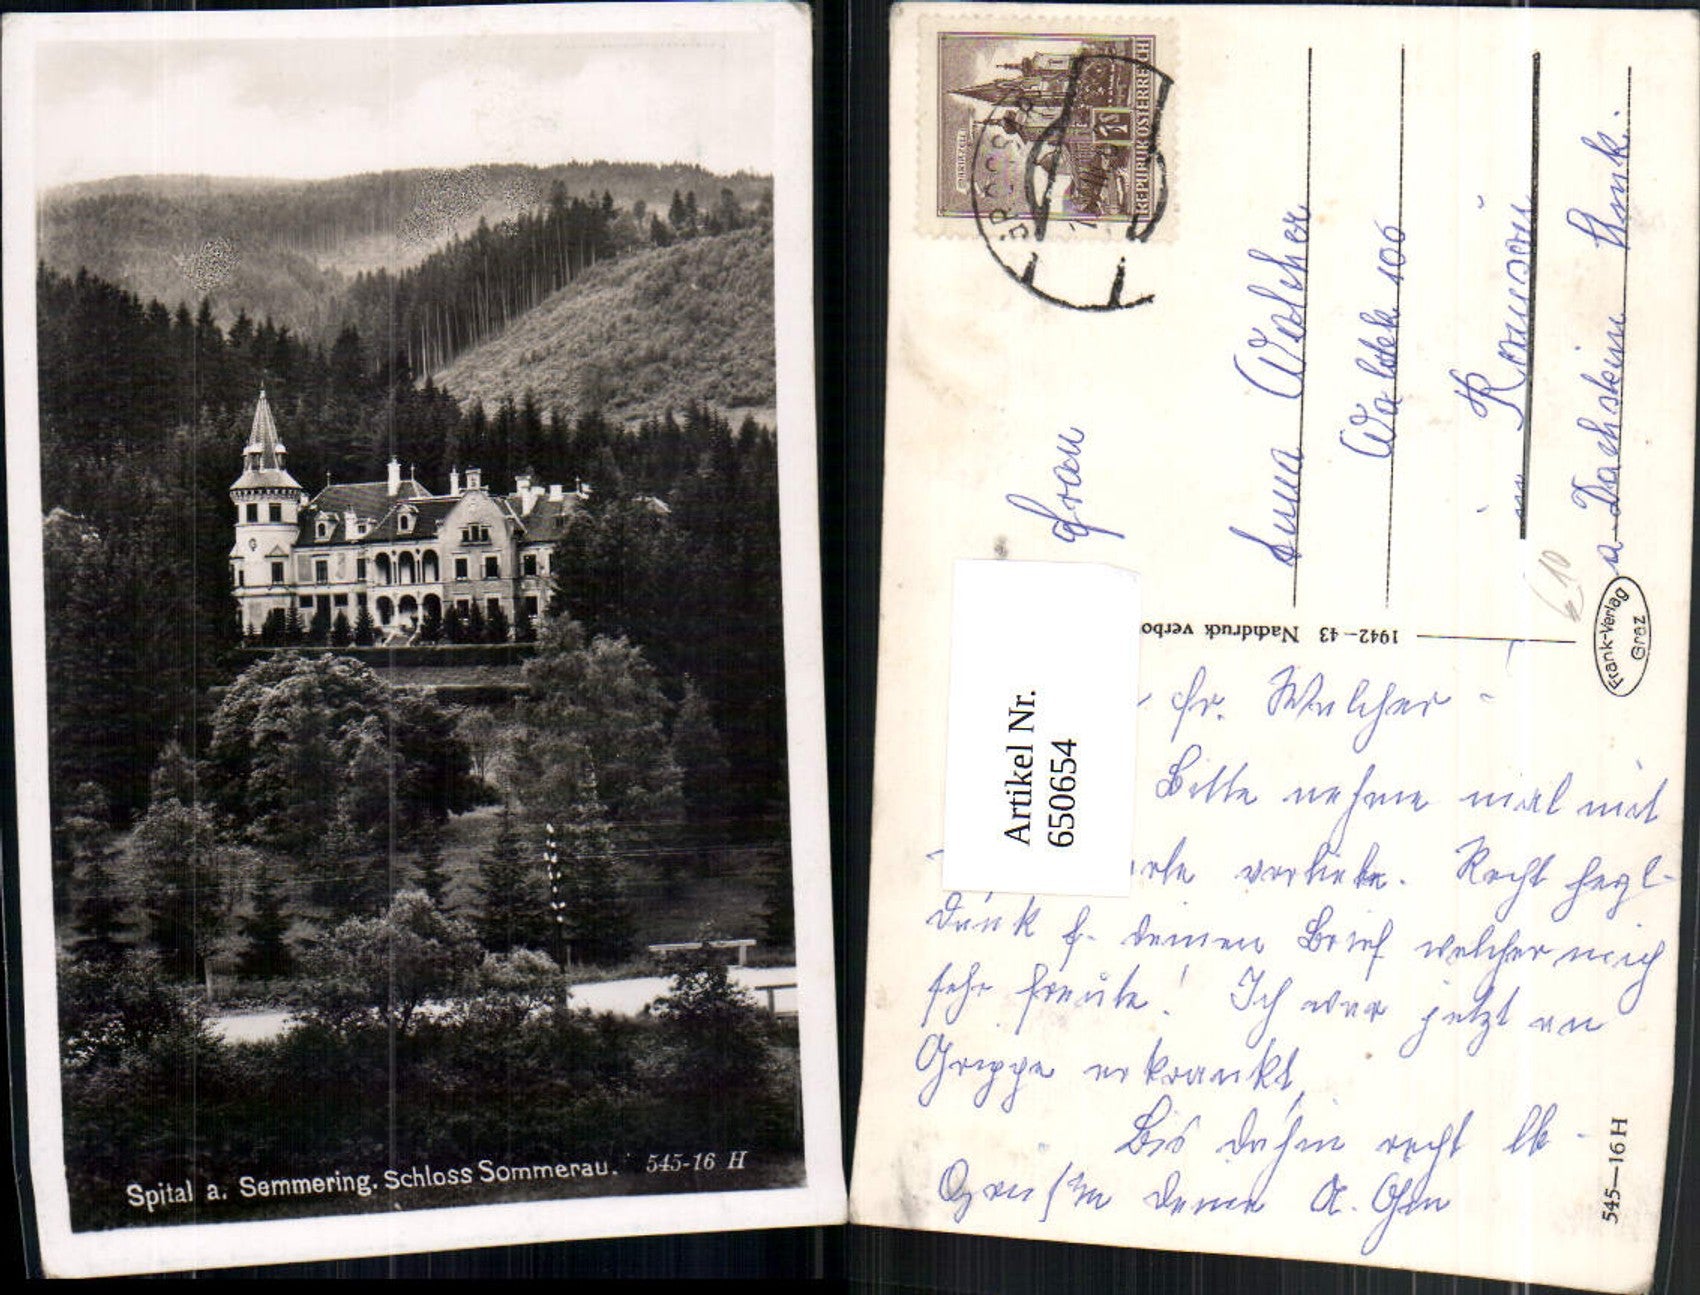 Spital a. Semmering. Schloss Sommerau. 545-16 H
REPUBLIK ÖSTERREICH
MARIAZELL
1S
Frau
Anna Walcher
Waldek 100
in Ramsau
a Dachstein Stmk.
€10
1942-43 Nachdruck verbo
Frank-Verlag
Graz
545—16 H
Artikel Nr.
6506654
fr. Walcher
Bitte nehme mal mit
arte vorliebe. Recht hezl-
Dank f. deinen Brief welcher mich
sehr freute! Ich war jetzt an
Grippe erkrankt
Bis dahin recht lb-
Grüße deine A.